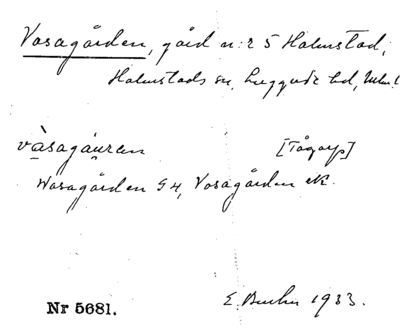 Vasagården, gård n:r 5 Halmstad,
Halmstads sn, Luggude hd, Mlm. l
vàsagáuren [Tågarp]
Wasagården G4, Vasagården ek.
Nr 5681. E. 1933.